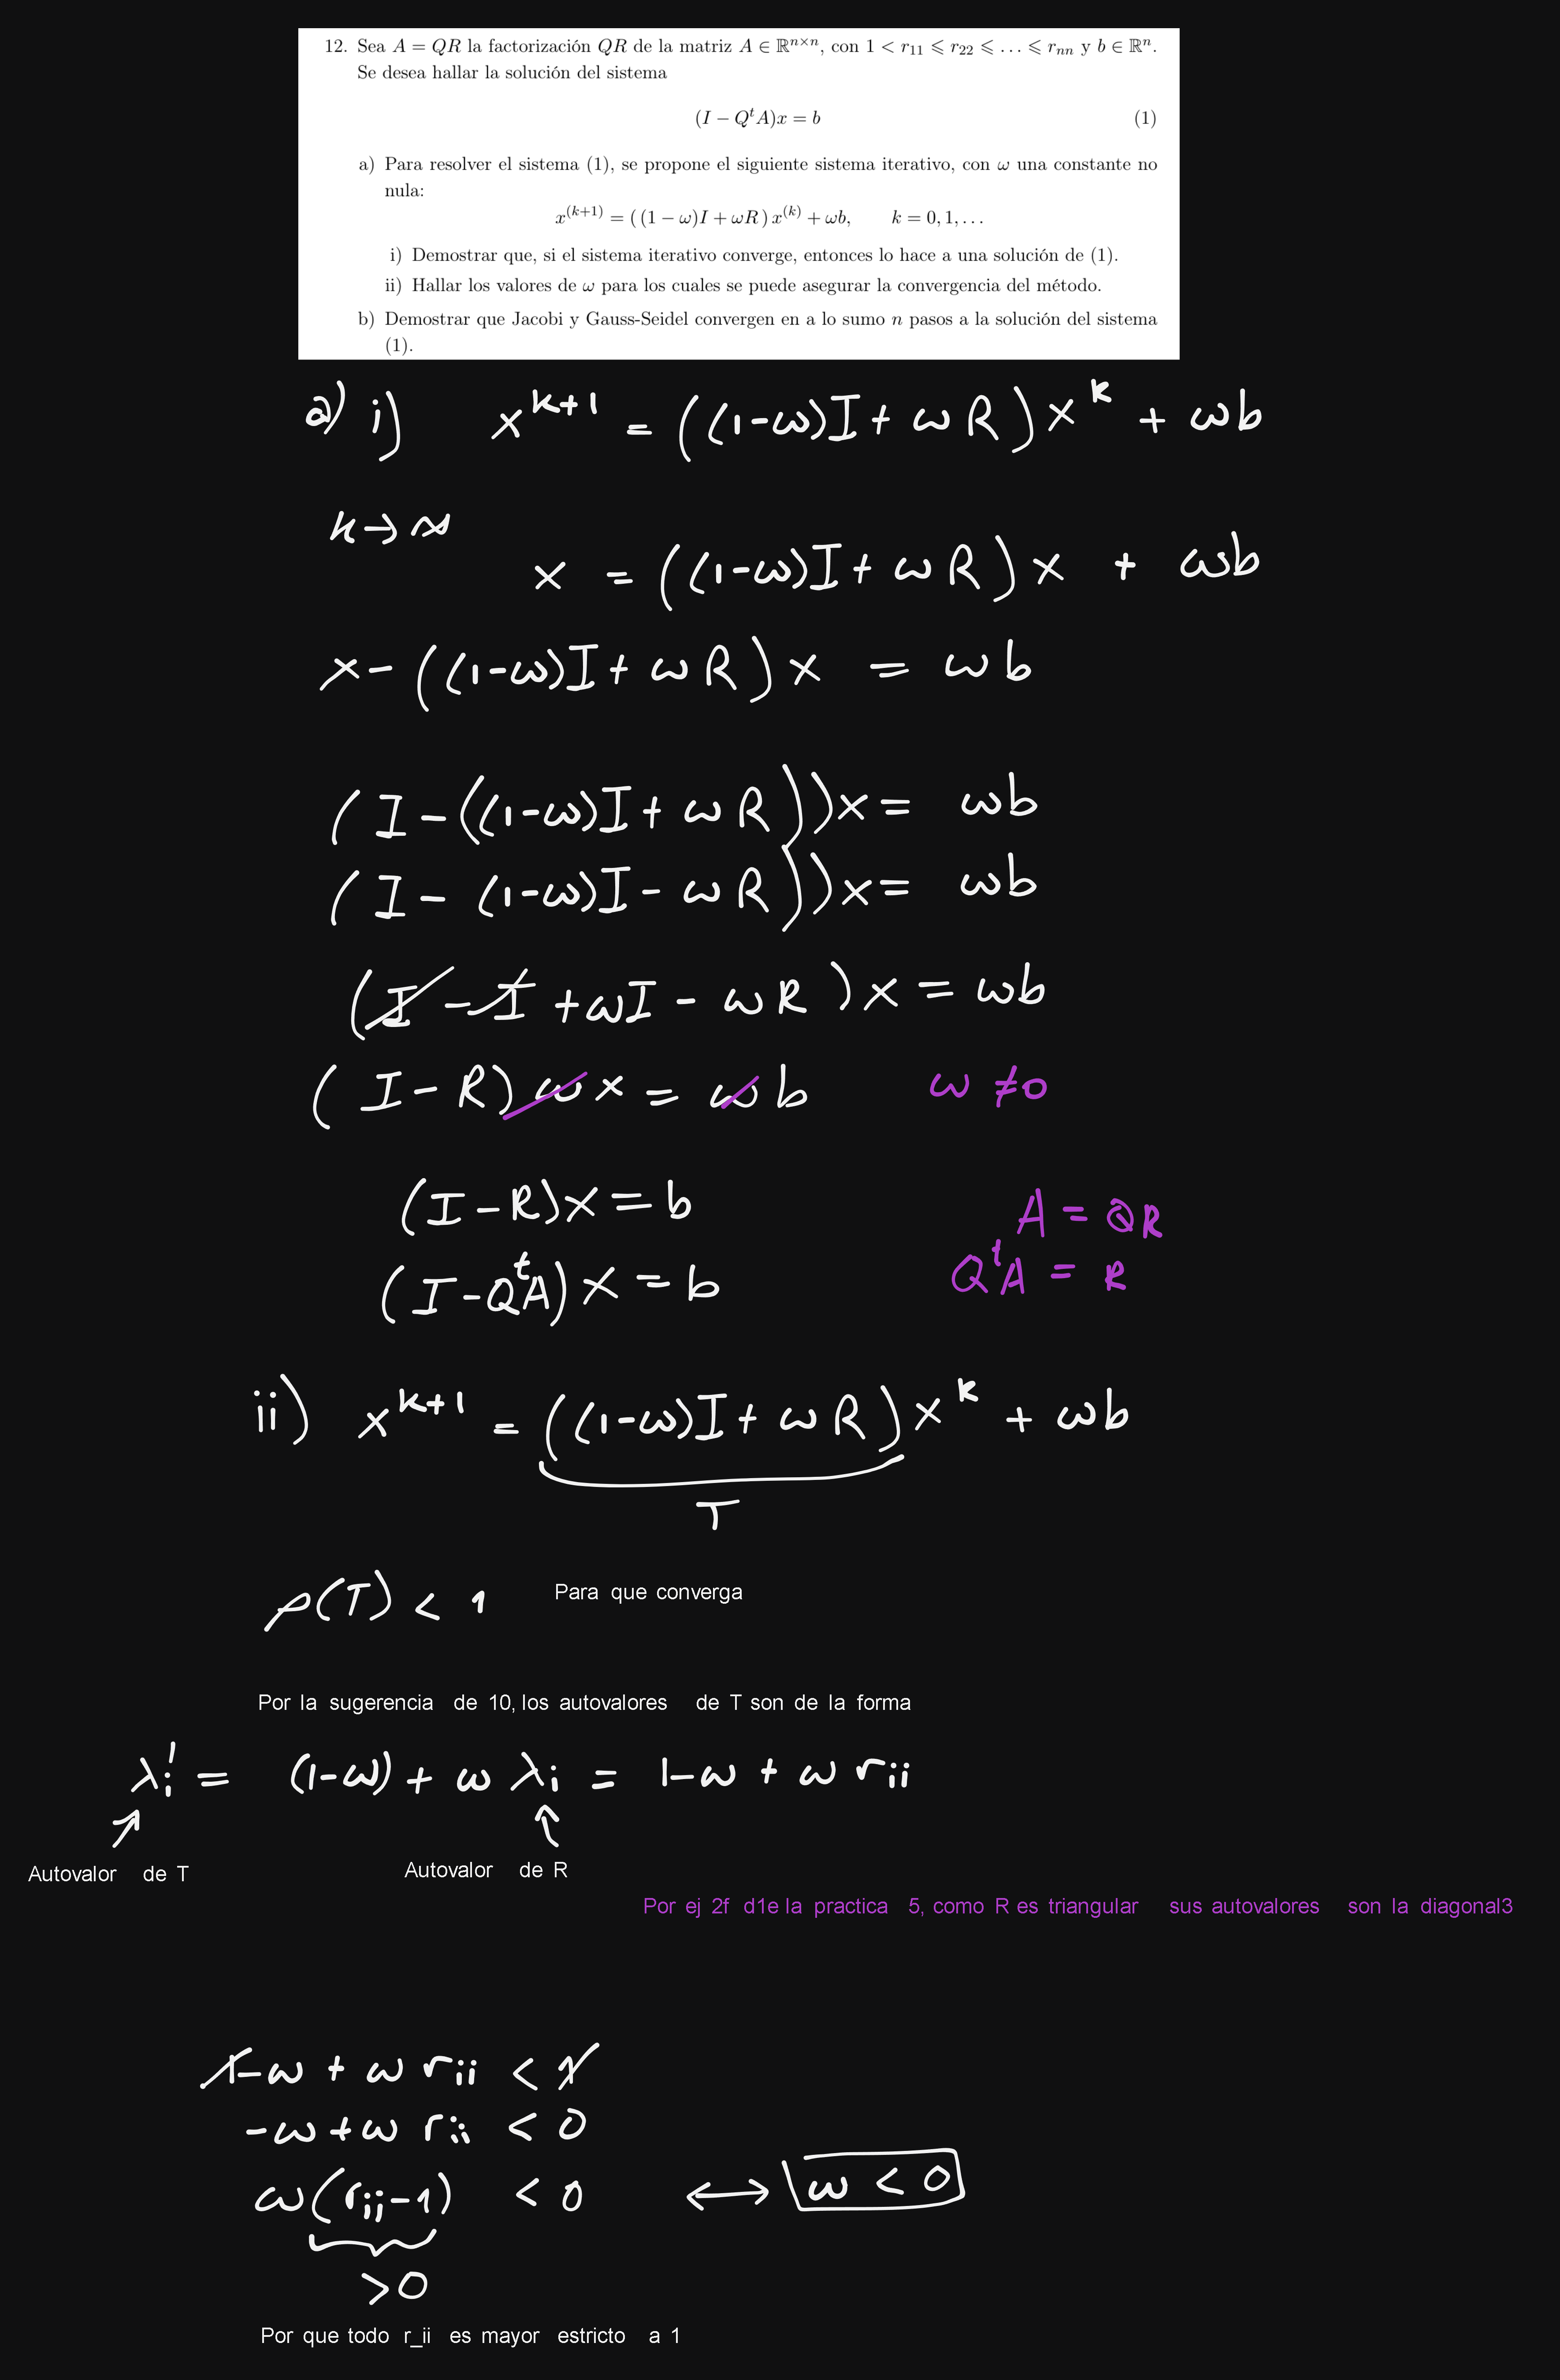 12. Sea A = QR la factorización QR de la matriz A ∈ ℝⁿˣⁿ, con 1 < r₁₁ ⩽ r₂₂ ⩽ … ⩽ rₙₙ y b ∈ ℝⁿ.
Se desea hallar la solución del sistema
(I − QᵗA)x = b (1)
a) Para resolver el sistema (1), se propone el siguiente sistema iterativo, con ω una constante no
nula:
x^(k+1) = ((1 − ω)I + ωR) x^(k) + ωb, k = 0, 1, …
i) Demostrar que, si el sistema iterativo converge, entonces lo hace a una solución de (1).
ii) Hallar los valores de ω para los cuales se puede asegurar la convergencia del método.
b) Demostrar que Jacobi y Gauss-Seidel convergen en a lo sumo n pasos a la solución del sistema
(1).
a) i) x^{k+1} = ((1-ω)I + ωR) x^k + ωb
k → ∞
x = ((1-ω)I + ωR) x + ωb
x - ((1-ω)I + ωR) x = ωb
(I - ((1-ω)I + ωR))x = ωb
(I - (1-ω)I - ωR))x = ωb
(I - I + ωI - ωR)x = ωb
(I - R) ω x = ω b ω ≠ 0
(I - R)x = b A = QR
(I - QᵗA)x = b QᵗA = R
ii) x^{k+1} = ((1-ω)I + ωR) x^k + ωb
T
ρ(T) < 1 Para que converga
Por la sugerencia de 10, los autovalores de T son de la forma
λi' = (1-ω) + ω λi = 1-ω + ω rii
Autovalor de T Autovalor de R
Por ej 2f d1e la practica 5, como R es triangular sus autovalores son la diagonal3
1-ω + ω rii < 1
-ω + ω rii < 0
ω(rii-1) < 0 ↔ ω < 0
>0
Por que todo r_ii es mayor estricto a 1